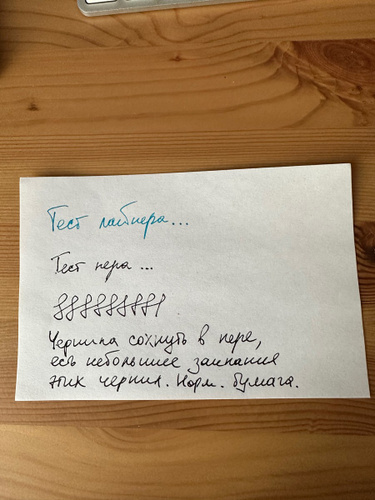 Тест лайнера...
Тест пера...
Чернила сохнуть в пере,
есть небольшие замкания
этих чернил. Норм. бумага.